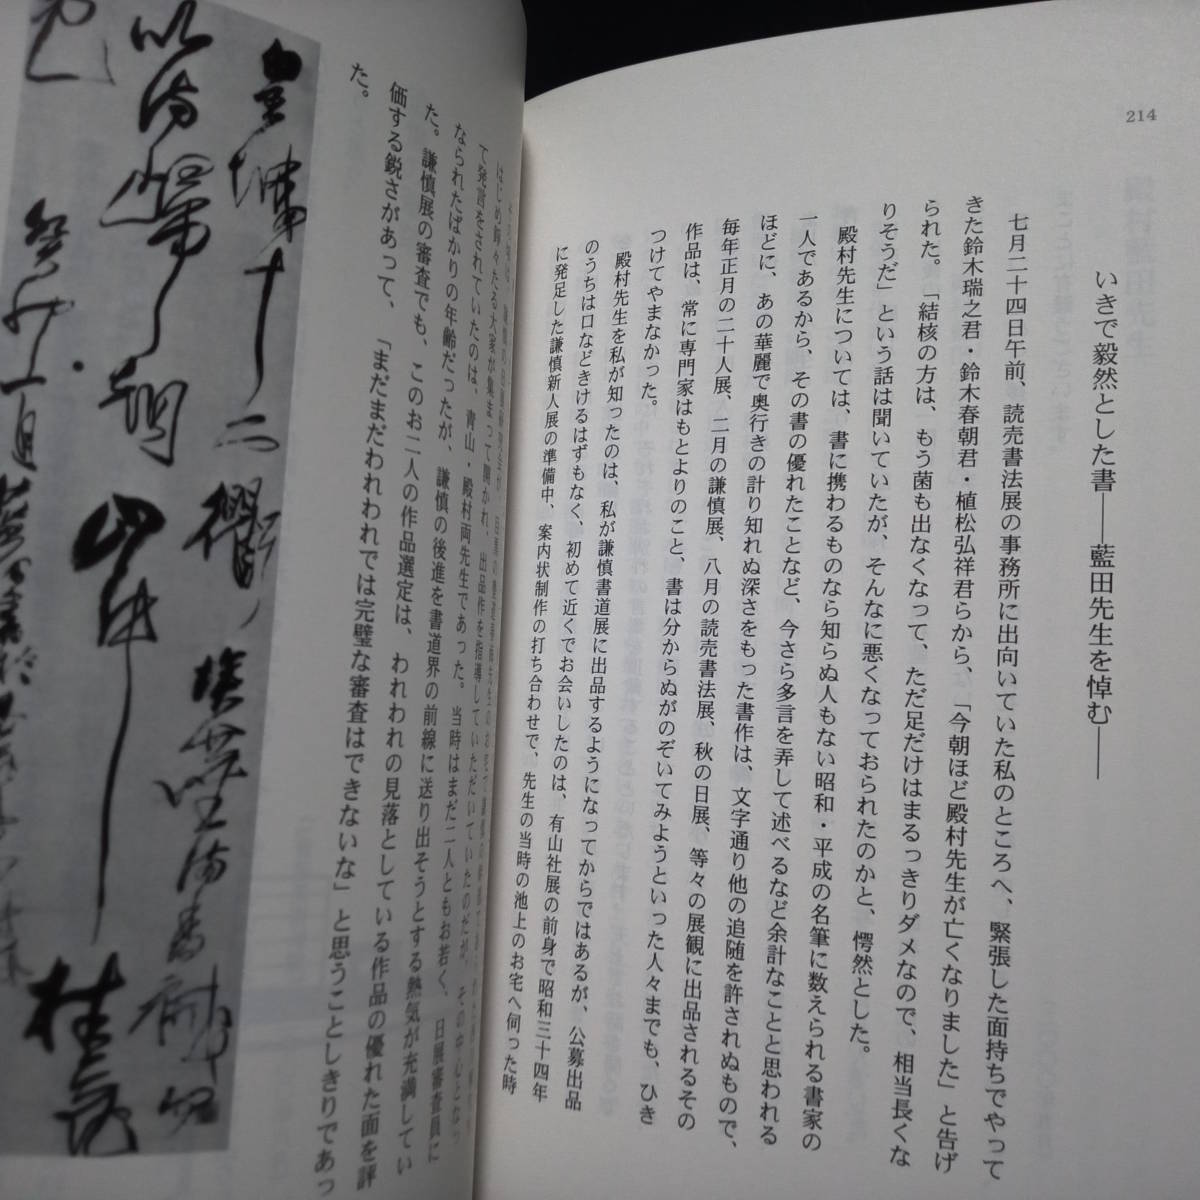 214
いきで毅然とした書——藍田先生を悼む——
七月二十四日午前、読売書法展の事務所に出向いていた私のところへ、緊張した面持ちでやって
きた鈴木瑞之君・鈴木春朝君・植松弘祥君らから、「今朝ほど殿村先生が亡くなりました」と告げ
られた。「結核の方は、もう菌も出なくなって、ただ足だけはまるっきりダメなので、相当長くな
りそうだ」という話は聞いていたが、そんなに悪くなっておられたのかと、愕然とした。
殿村先生については、書に携わるものなら知らぬ人もない昭和・平成の名筆に数えられる書家の
一人であるから、その書の優れたことなど、今さら多言を弄して述べるなど余計なことと思われる
ほどに、あの華麗で奥行きの計り知れぬ深さをもった書作は、文字通り他の追随を許されぬもので、
毎年正月の二十人展、二月の謙慎展、八月の読売書法展、秋の日展、等々の展観に出品されるその
作品は、常に専門家はもとよりのこと、書は分からぬがのぞいてみようといった人々までも、ひき
つけてやまなかった。
殿村先生を私が知ったのは、私が謙慎書道展に出品するようになってからではあるが、公募出品
のうちは口などきけるはずもなく、初めて近くでお会いしたのは、有山社展の前身で昭和三十四年
に発足した謙慎新人展の準備中、案内状制作の打ち合わせで、先生の当時の池上のお宅へ伺った時
はじめ錚々たる大家が集まって開かれ、出品作を指導していただいていたのだが、その中心となっ
て発言をされていたのは、青山・殿村両先生であった。当時はまだ二人ともお若く、日展審査員に
なられたばかりの年齢だったが、謙慎の後進を書道界の前線に送り出そうとする熱気が充満してい
た。謙慎展の審査でも、このお二人の作品選定は、われわれの見落としている作品の優れた面を評
価する鋭さがあって、「まだまだわれわれでは完璧な審査はできないな」と思うことしきりであっ
た。